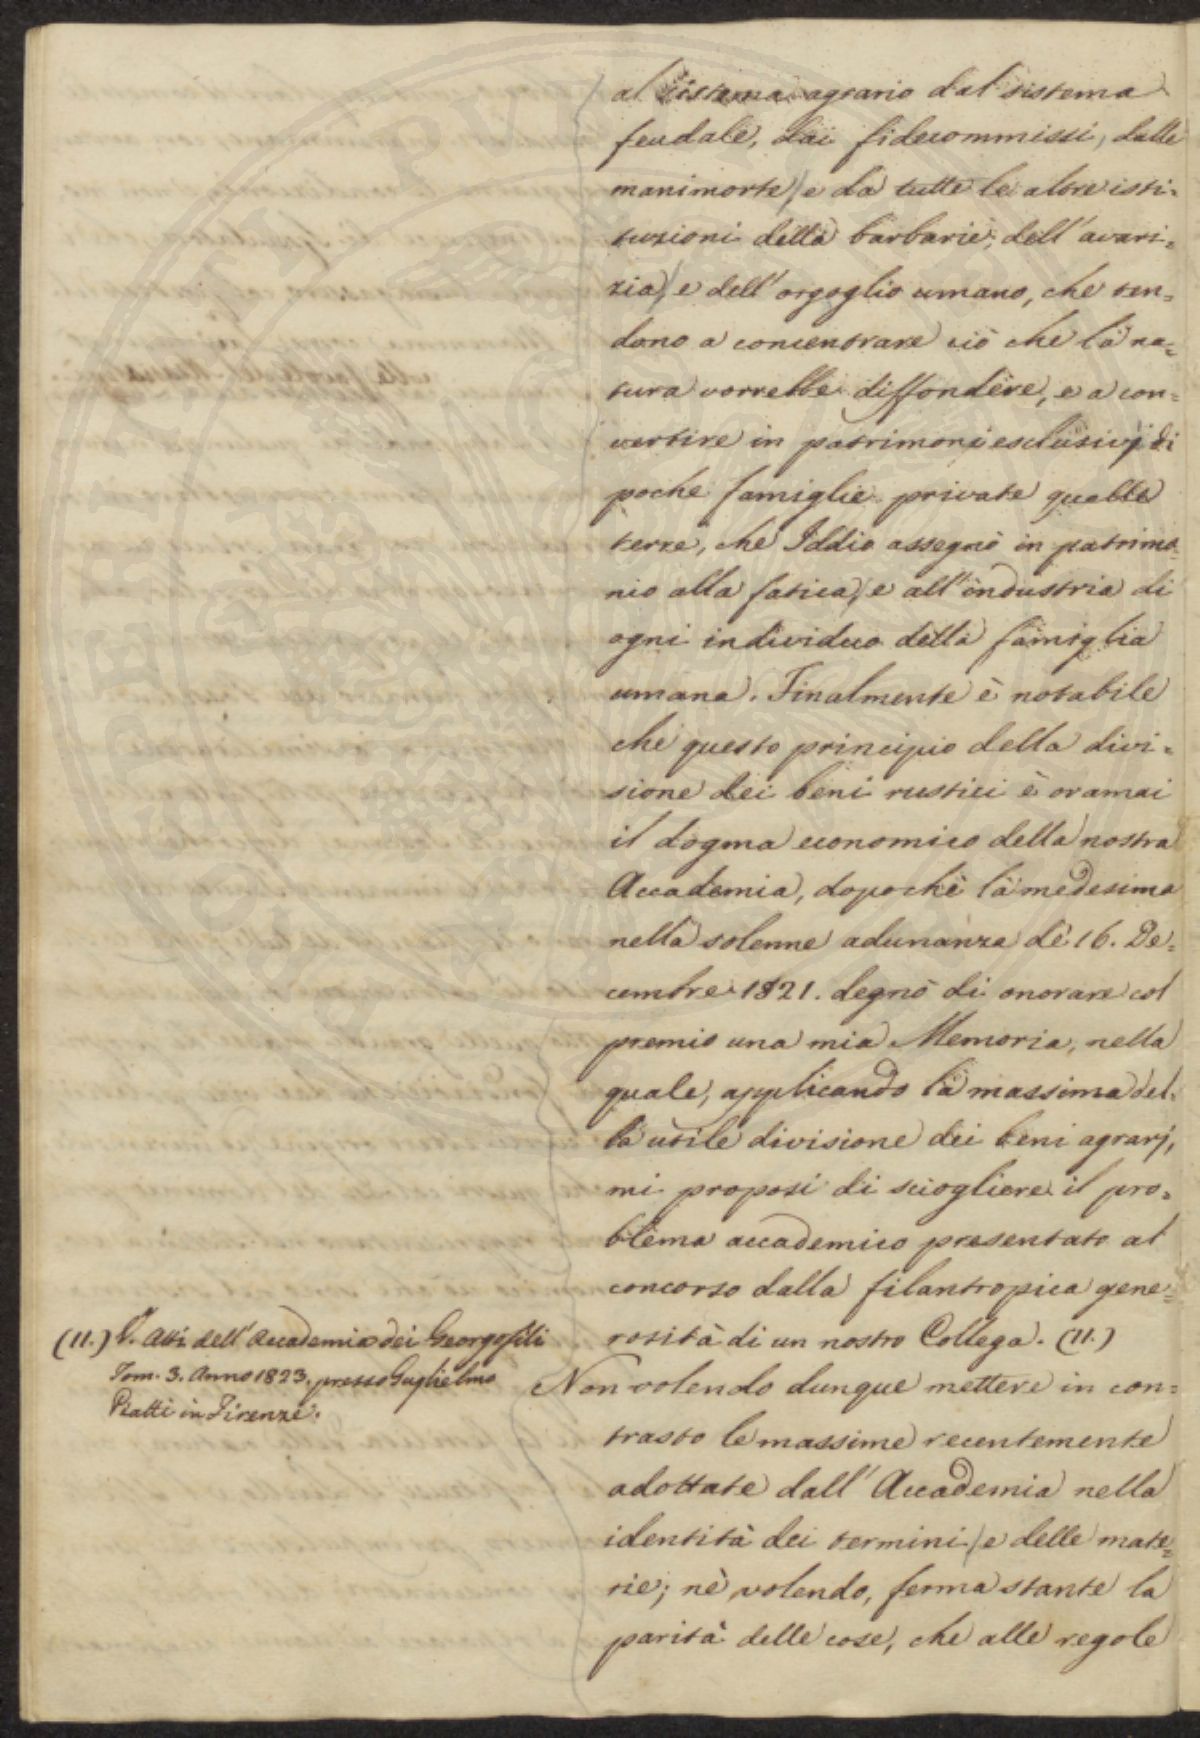 al sistema agrario dal sistema
feudale, dai fidecommissi, dalle
manimorte, e da tutte le altre isti-
tuzioni della barbarie, dell'avari-
zia, e dell'orgoglio umano, che ten-
dono a concentrare ciò che la na-
tura vorrebbe diffondere, e a con-
vertire in patrimonj esclusivi di
poche famiglie private quelle
terre, che Iddio assegnò in patrimo-
nio alla fatica, e all'industria di
ogni individuo della famiglia
umana. Finalmente è notabile
che questo principio della divi-
sione dei beni rustici è oramai
il dogma economico della nostra
Accademia, dopochè la medesima
nella solenne adunanza de' 16. De-
cembre 1821. degnò di onorare col
premio una mia Memoria, nella
quale, applicando la massima del-
la utile divisione dei beni agrarj,
mi proposi di sciogliere il pro-
blema accademico presentato al
concorso dalla filantropica gene-
rosità di un nostro Collega. (11.)
Non volendo dunque mettere in con-
trasto le massime recentemente
adottate dall'Accademia nella
identità dei termini, e delle mate-
rie; nè volendo, ferma stante la
parità delle cose, che alle regole
(11.) V. Atti dell'Accademia dei Georgofili
Tom. 3. Anno 1823. presso Guglielmo
Piatti in Firenze.